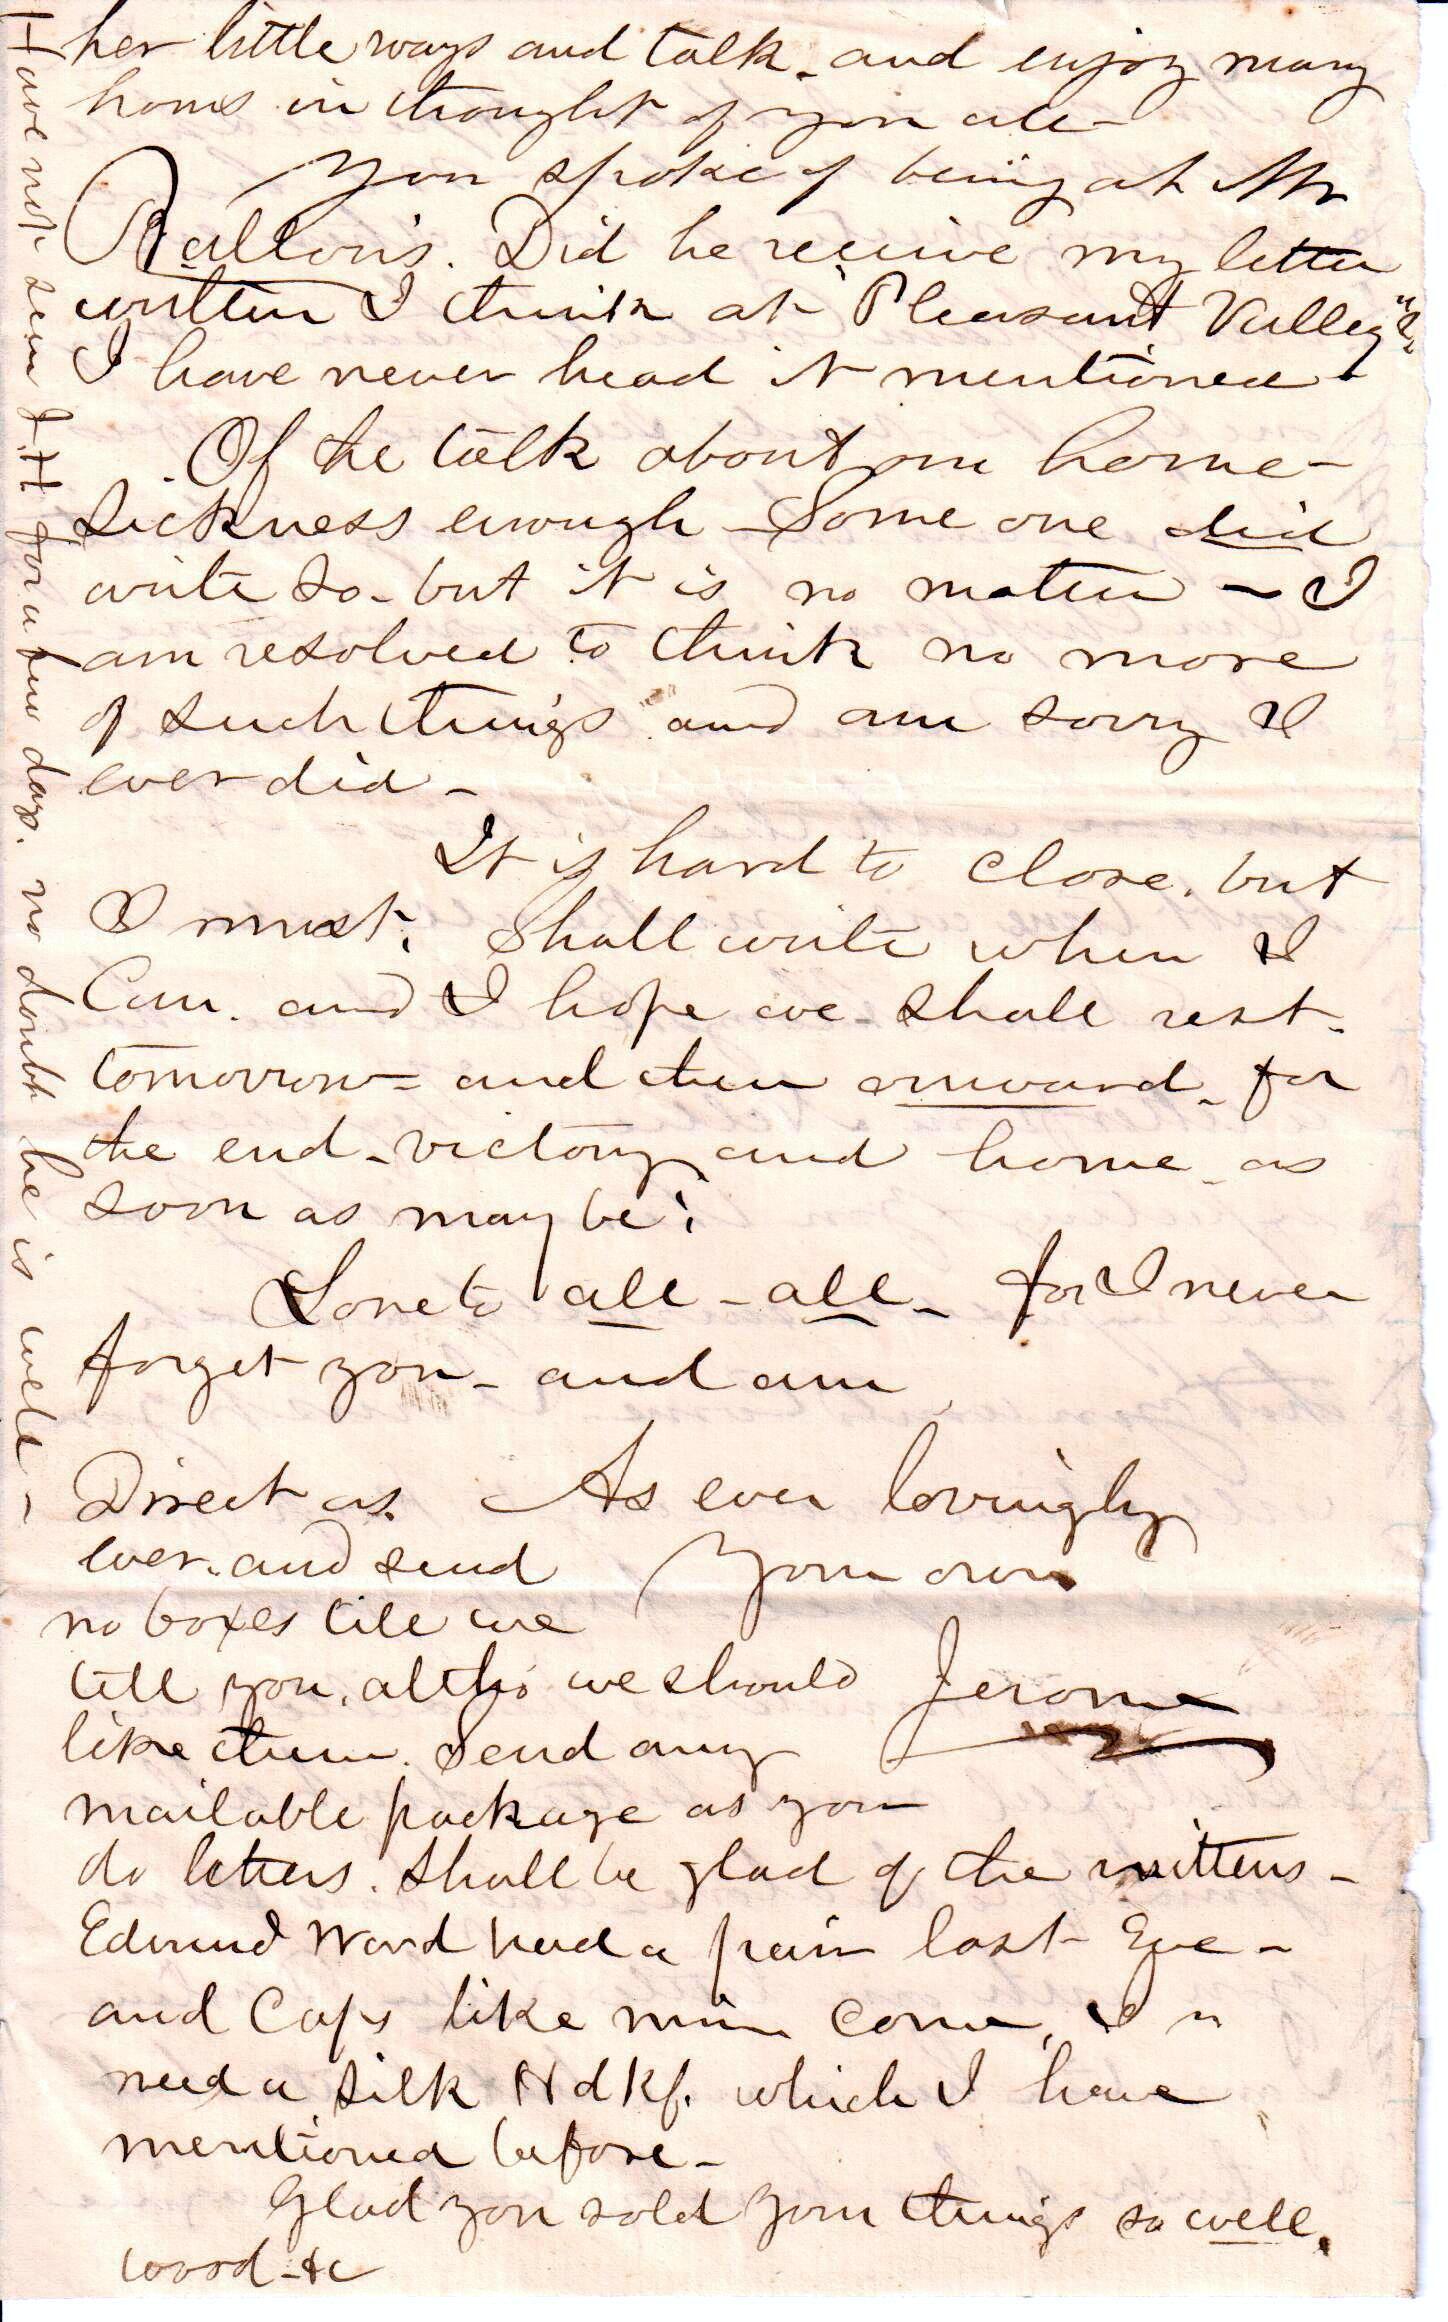 her little ways and talk - and enjoy many
hours in thought of you all -
You spoke of being at Mr
Ralston's. Did he receive my letter
written I think at "Pleasant Valley"?
I have never head it mentioned -
Of the talk about our home-
sickness enough - Some one did
write so - but it is no matter - I
am resolved to think no more
of such things and am sorry I
ever did -
It is hard to close, but
I must. Shall write when I
Can. and I hope we shall rest
tomorrow - and then onward - for
the end - victory and home - as
soon as may be.
Love to all - all - for I never
forget you - and am
As ever lovingly
Your own
Jerome
Direct as
ever. and send
no boxes till we
tell you, altho' we should
like them. Send any
mailable package as you
do letters. Shall be glad of the mittens -
Edmund Ward had a pair last Eve -
and Caps like mine come, I
need a silk Hdkf. which I have
mentioned before -
Glad you sold your things so well.
wood - &c
Have not seen J.H for a few days. no doubt he is well -